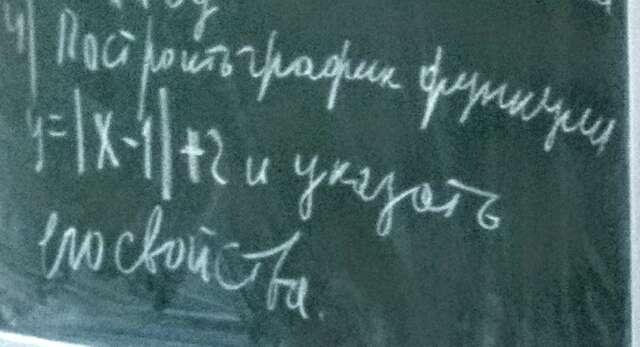 4) Построить график функции
y=|x-1|+2 и указать
его свойства.